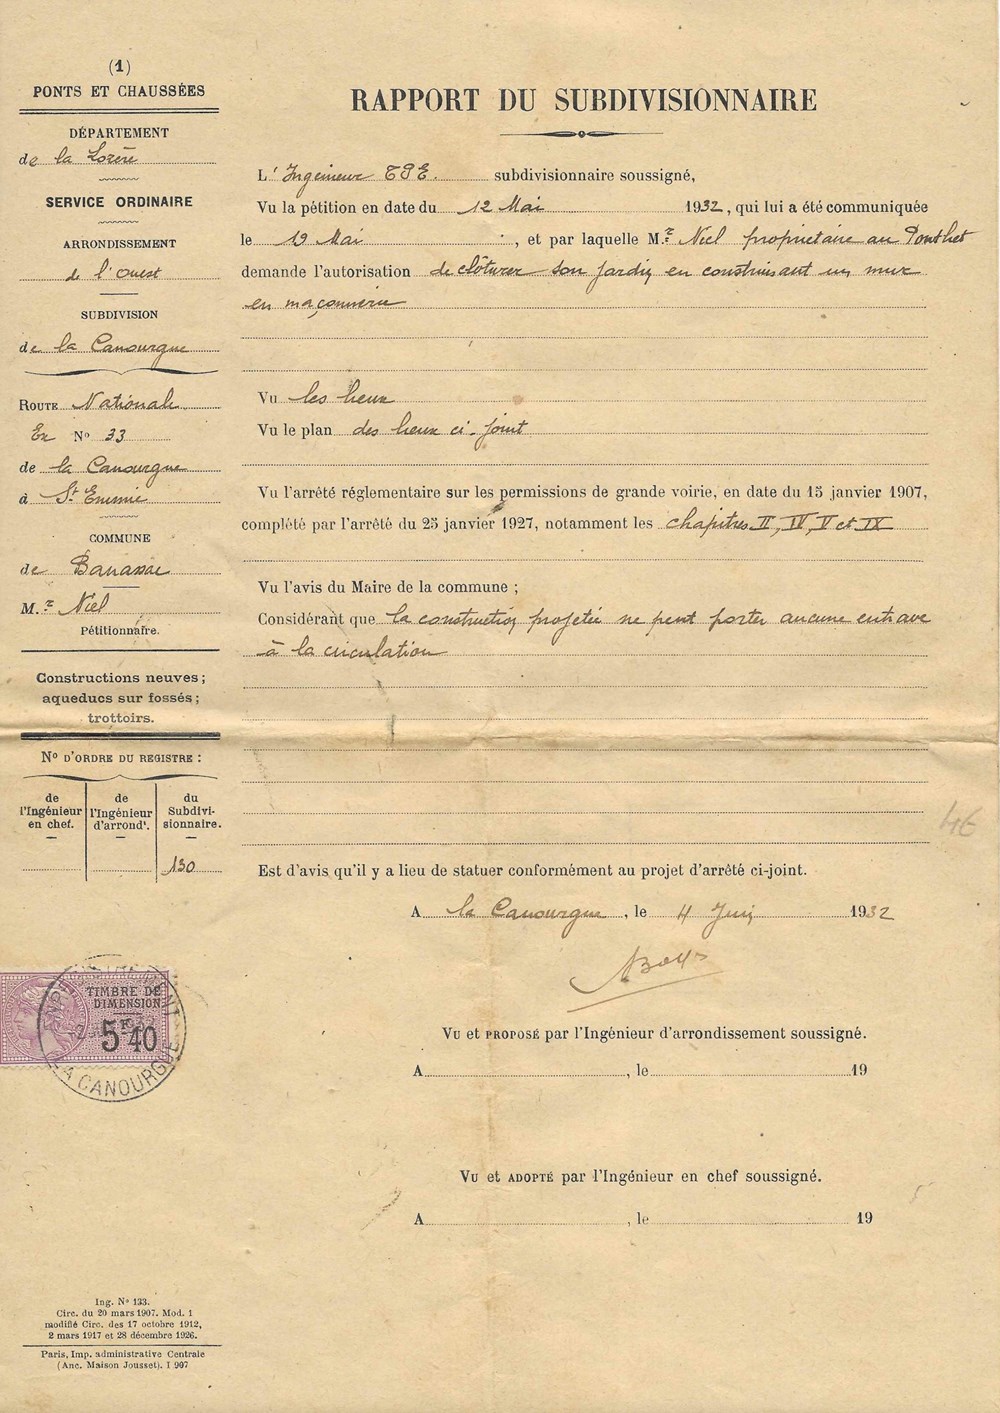 (1)
PONTS ET CHAUSSÉES
DÉPARTEMENT
de la Lozère
SERVICE ORDINAIRE
ARRONDISSEMENT
de l'Ouest
SUBDIVISION
de la Canourgue
ROUTE Nationale
Ex N° 33
de la Canourgue
à St Enimie
COMMUNE
de Banassac
M.r Niel
Pétitionnaire.
Constructions neuves ;
aqueducs sur fossés ;
trottoirs.
N° D'ORDRE DU REGISTRE :
de l'Ingénieur en chef.
de l'Ingénieur d'arrondt.
du Subdivisionnaire.
130
TIMBRE DE
DIMENSION
5F40
LA CANOURGUE
Ing. N° 133.
Circ. du 20 mars 1907. Mod. 1
modifié Circ. des 17 octobre 1912,
2 mars 1917 et 28 décembre 1926.
Paris, Imp. administrative Centrale
(Anc. Maison Jousset). I 907
RAPPORT DU SUBDIVISIONNAIRE
L'Ingénieur TPE subdivisionnaire soussigné,
Vu la pétition en date du 12 Mai 1932, qui lui a été communiquée
le 19 Mai, et par laquelle M.r Niel propriétaire au Ponthet
demande l'autorisation de clôturer son jardin en construisant un mur
en maçonnerie
Vu les lieux
Vu le plan des lieux ci-joint
Vu l'arrêté réglementaire sur les permissions de grande voirie, en date du 15 janvier 1907,
complété par l'arrêté du 25 janvier 1927, notamment les chapitres II, IV, V et IX
Vu l'avis du Maire de la commune ;
Considérant que la construction projetée ne peut porter aucune entrave
à la circulation
46
Est d'avis qu'il y a lieu de statuer conformément au projet d'arrêté ci-joint.
A la Canourgue, le 4 Juin 1932
VU et PROPOSÉ par l'Ingénieur d'arrondissement soussigné.
A , le 19
VU et ADOPTÉ par l'Ingénieur en chef soussigné.
A , le 19